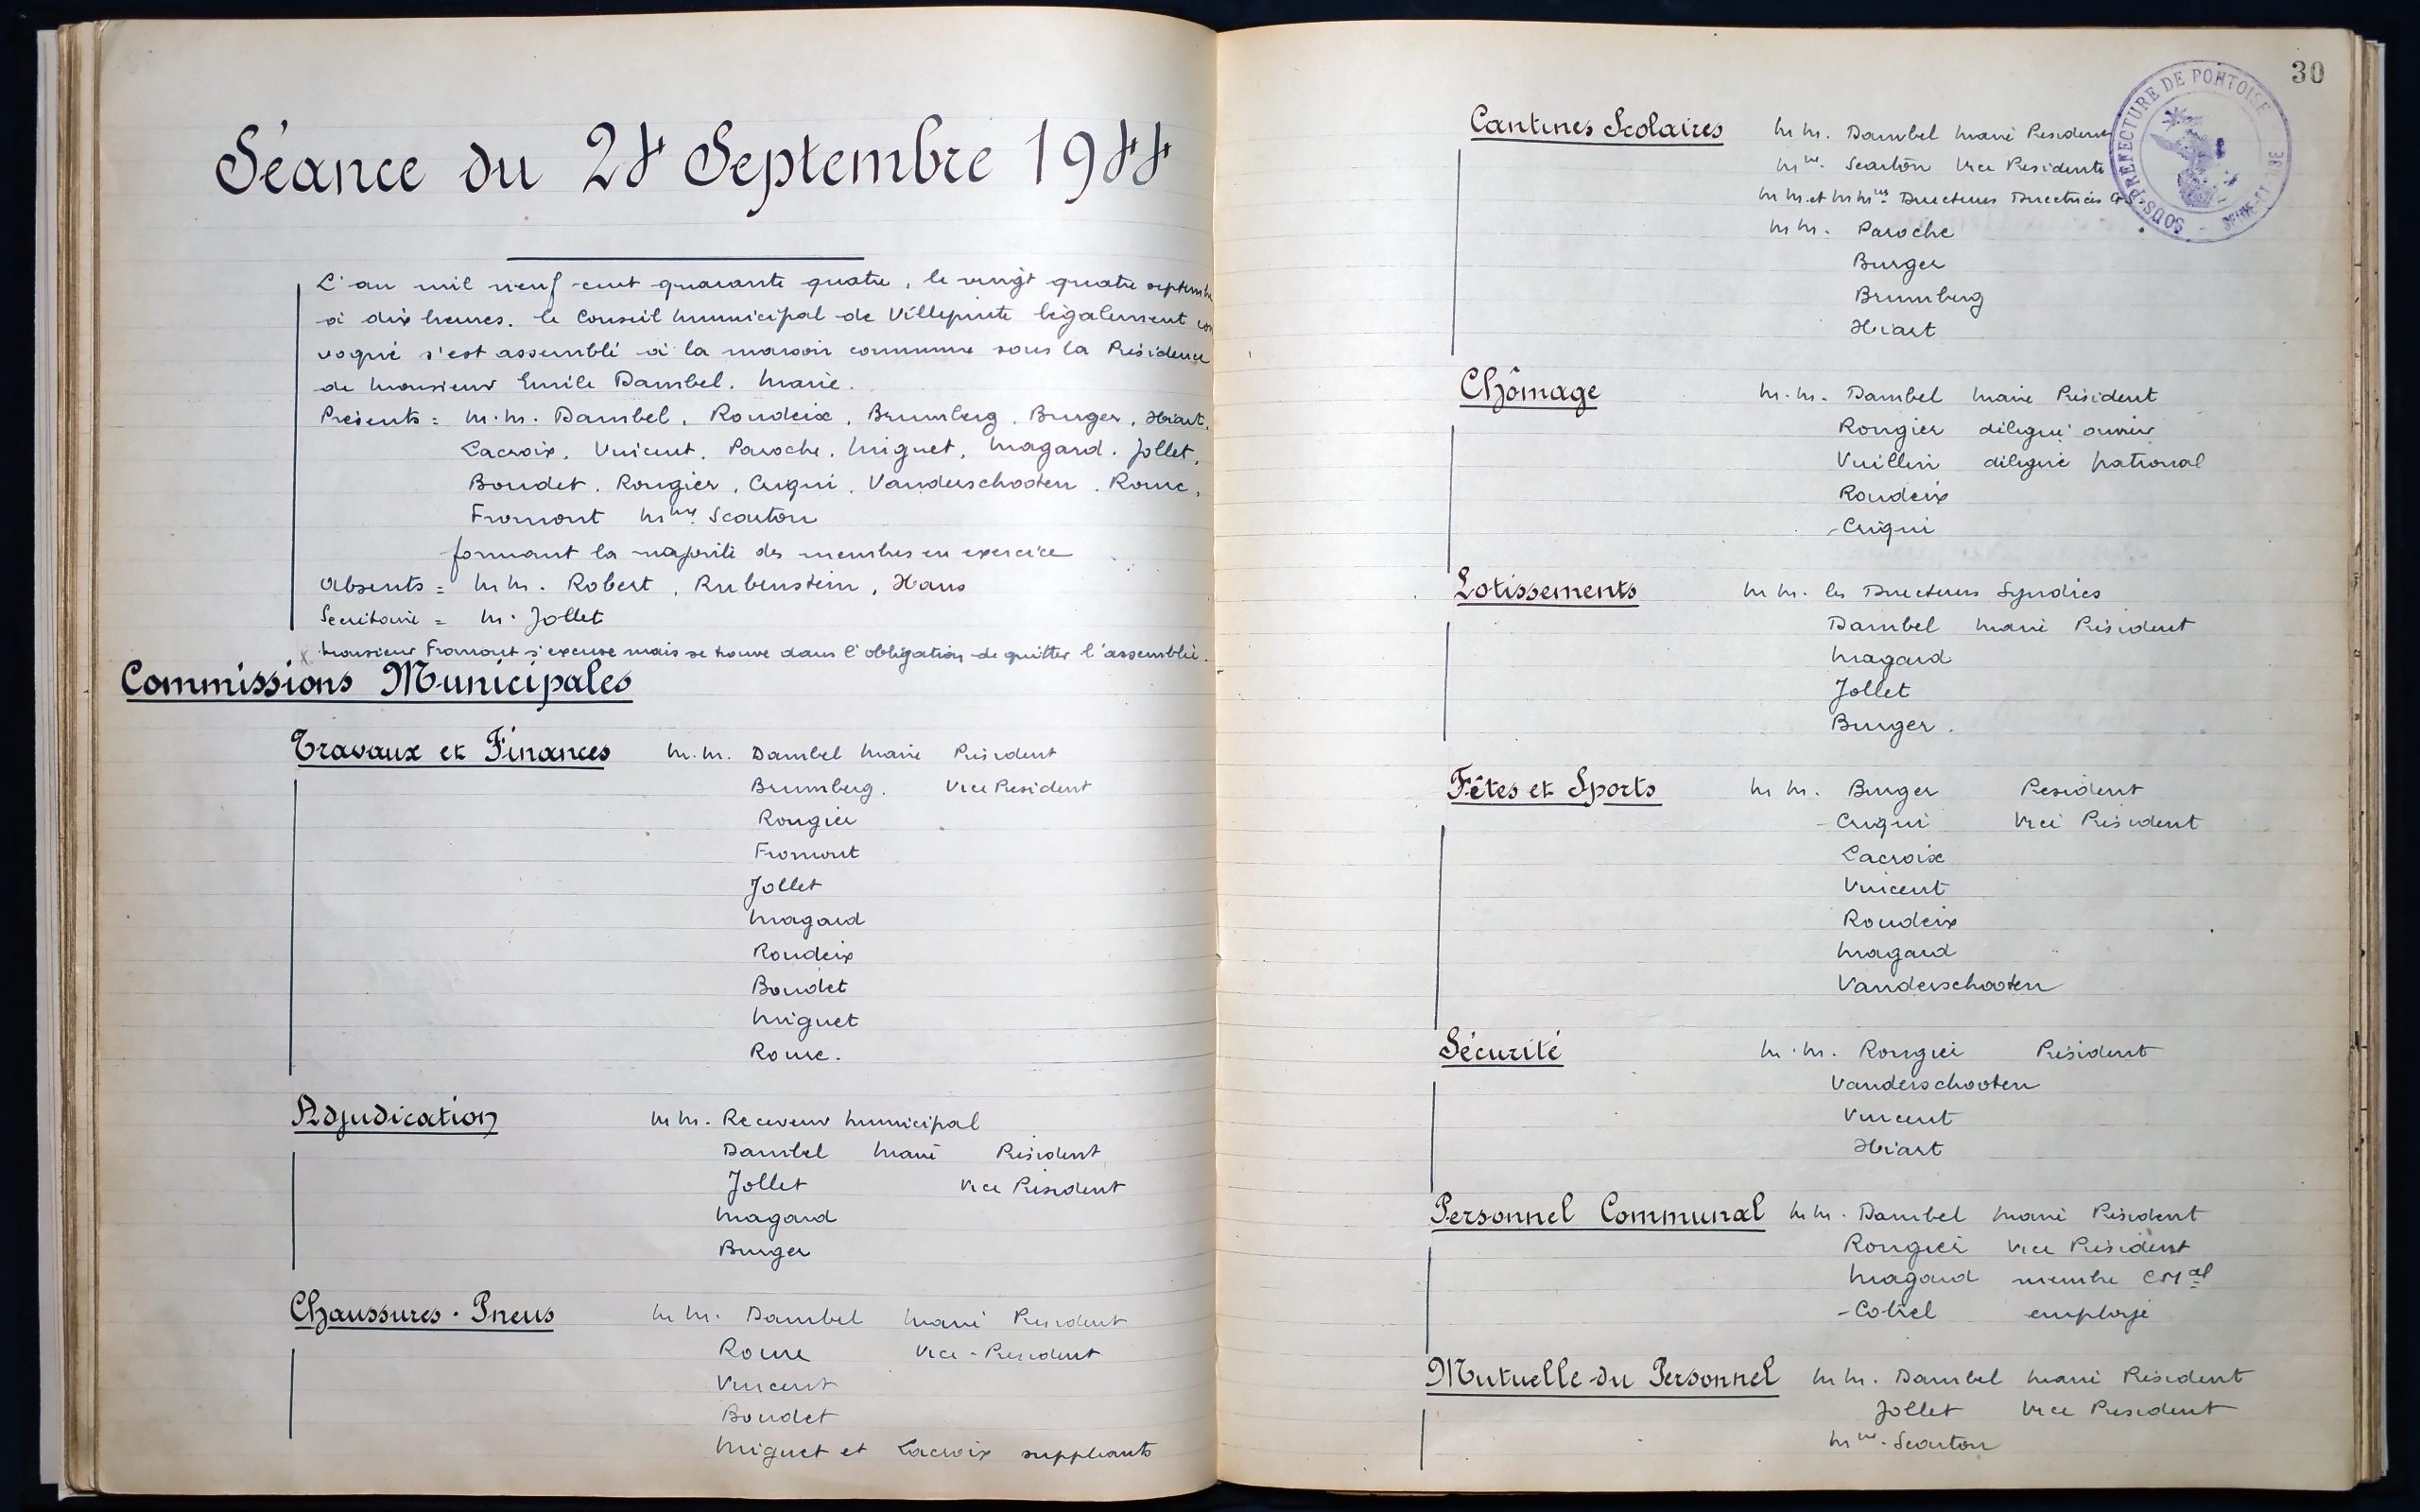 Séance du 24 Septembre 1944
L'an mil neuf cent quarante quatre, le vingt quatre septembre
à dix heures. le Conseil Municipal de Villepinte légalement con
voqué s'est assemblé à la maison commune sous la Présidence
de Monsieur Emile Dambel. Maire.
Présents = M.M. Dambel, Roudeix, Brumberg, Burger, Hiart,
Lacroix, Vincent, Paroche, Miguet, Magard. Jollet,
Boudet, Rougier, Cuqui, Vanderschooten, Roure,
Fromont Mme Scouton
formant la majorité des membres en exercice
Absents = M.M. Robert, Rubenstein, Haus
Secrétaire = M. Jollet
x Monsieur Fromont s'excuse mais se trouve dans l'obligation de quitter l'assemblée.
Commissions Municipales
Travaux et Finances M.M. Dambel Maire Président
Brumberg. Vice Président
Rougier
Fromont
Jollet
Magard
Roudeix
Boudet
Miguet
Roure.
Adjudication M.M. Receveur Municipal
Dambel Maire Président
Jollet Vice Président
Magard
Burger
Chaussures - Pneus M.M. Dambel Maire Président
Roure Vice-Président
Vincent
Boudet
Miguet et Lacroix suppléants
30
SOUS-PRÉFECTURE DE PONTOISE
SEINE-ET-OISE
Cantines Scolaires M.M. Dambel Maire Président
Mme. Scouton Vice Présidente
M.M. et Mmes Directeurs Directrices
M.M. Paroche
Burger
Brumberg
Hiart
Chômage M.M. Dambel Maire Président
Rougier délégué ouvrier
Vuillin délégué patronal
Roudeix
Cuqui
Lotissements M.M. les Directeurs Syndics
Dambel Maire Président
Magard
Jollet
Burger.
Fêtes et Sports M.M. Burger Président
Cuqui Vice Président
Lacroix
Vincent
Roudeix
Magard
Vanderschooten
Sécurité M.M. Rougier Président
Vanderschooten
Vincent
Hiart
Personnel Communal M.M. Dambel Maire Président
Rougier Vice Président
Magard membre CMal
Cotrel employé
Mutuelle du Personnel M.M. Dambel Maire Président
Jollet Vice Président
Mme. Scouton